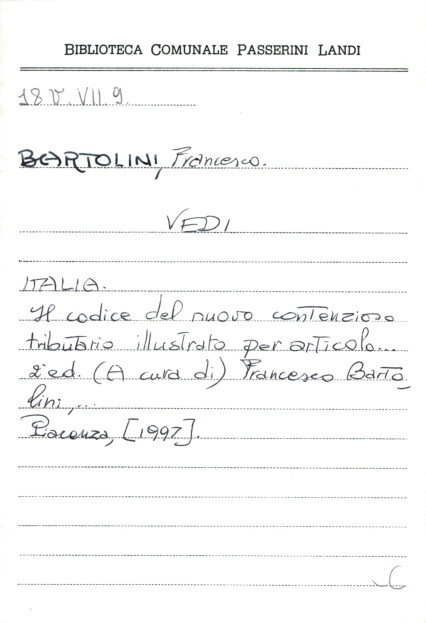 BIBLIOTECA COMUNALE PASSERINI LANDI
18 V. VII. 9.
BARTOLINI, Francesco.
VEDI
ITALIA.
Il codice del nuovo contenzioso
tributario illustrato per articolo...
2ª ed. (A cura di) Francesco Barto_
lini,...
Piacenza, [1997].